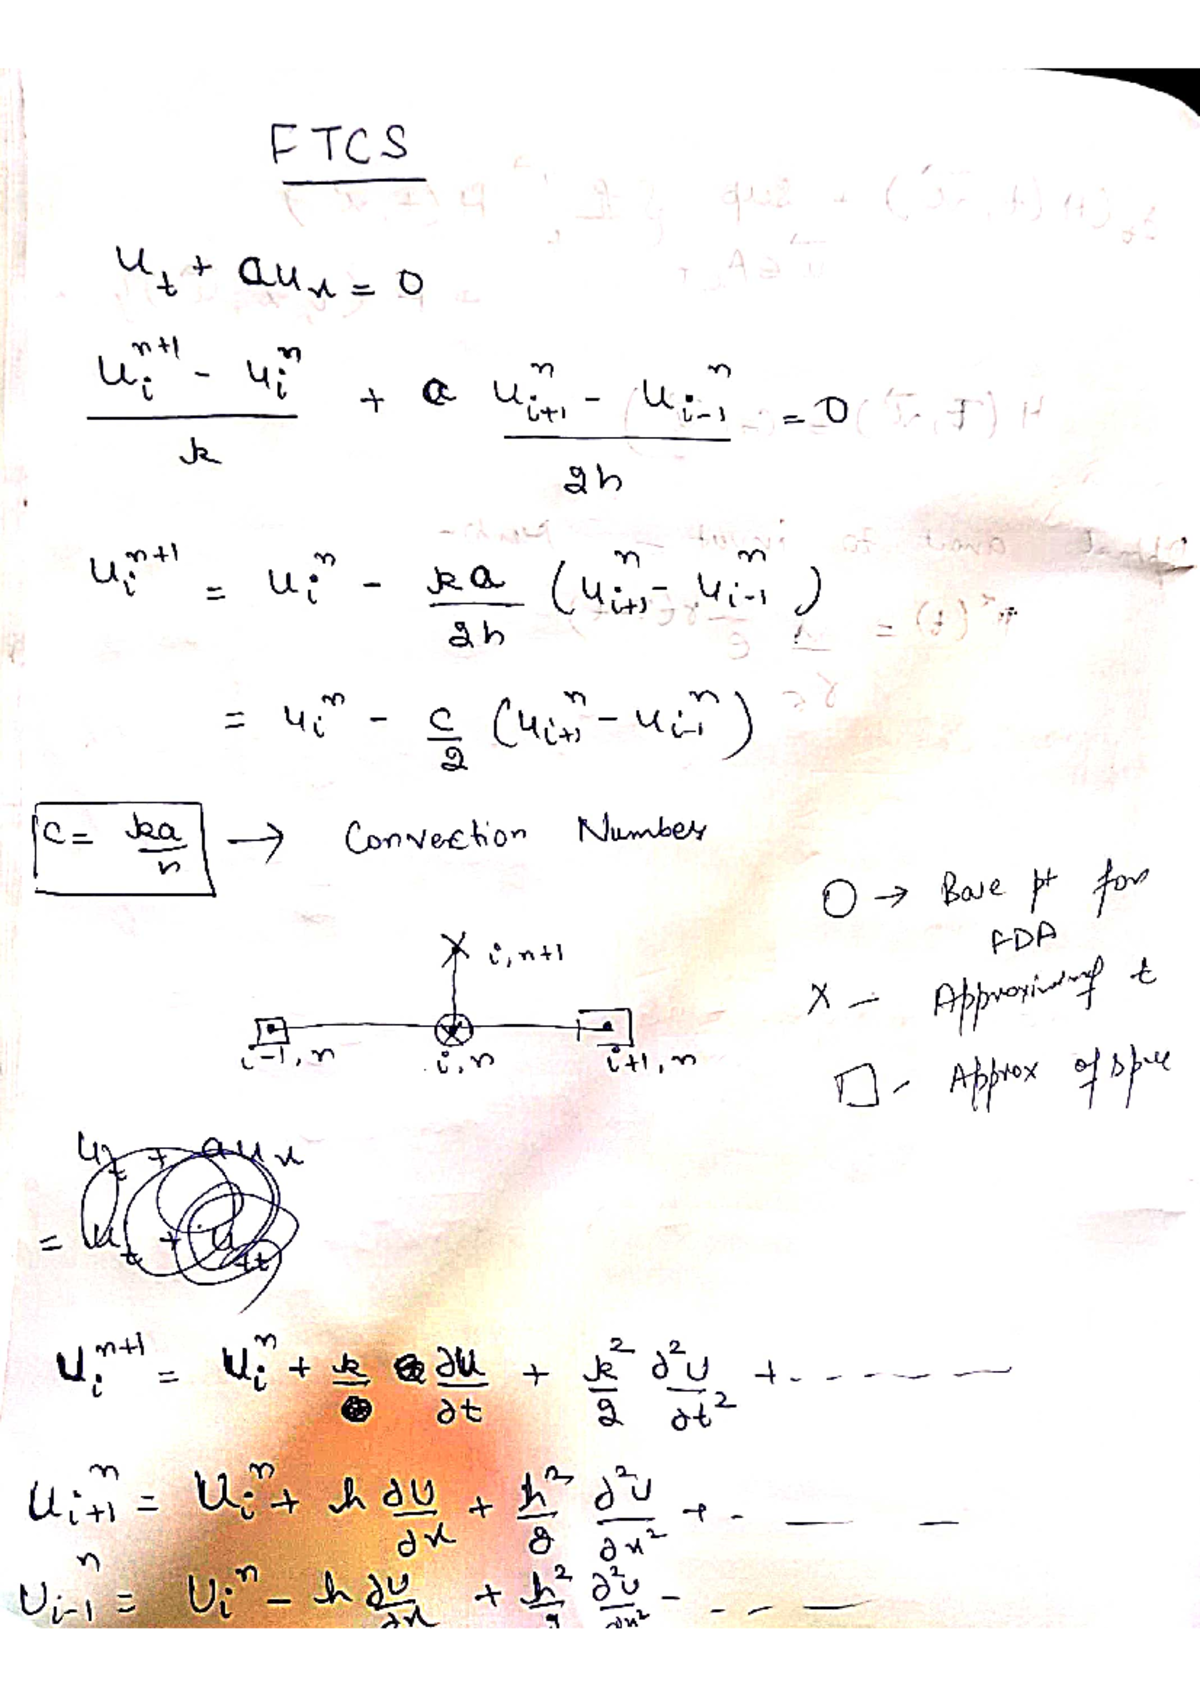 FTCS
u_t + au_x = 0
(u_i^{n+1} - u_i^n)/k + a (u_{i+1}^n - u_{i-1}^n)/2h = 0
u_i^{n+1} = u_i^n - ka/2h (u_{i+1}^n - u_{i-1}^n)
= u_i^n - c/2 (u_{i+1}^n - u_{i-1}^n)
c = ka/h → Convection Number
O → Base pt for
FDA
X i, n+1
X - Approximing t
i-1, n i, n i+1, n
□ - Approx of spce
u_t + au_x
= u_t + u_tt
u_i^{n+1} = u_i^n + k ∂u/∂t + k²/2 ∂²u/∂t² + . - - - -
u_{i+1}^n = u_i^n + h ∂u/∂x + h²/2 ∂²u/∂x² + . - - -
u_{i-1}^n = u_i^n - h ∂u/∂x + h²/2 ∂²u/∂x² - . - - -